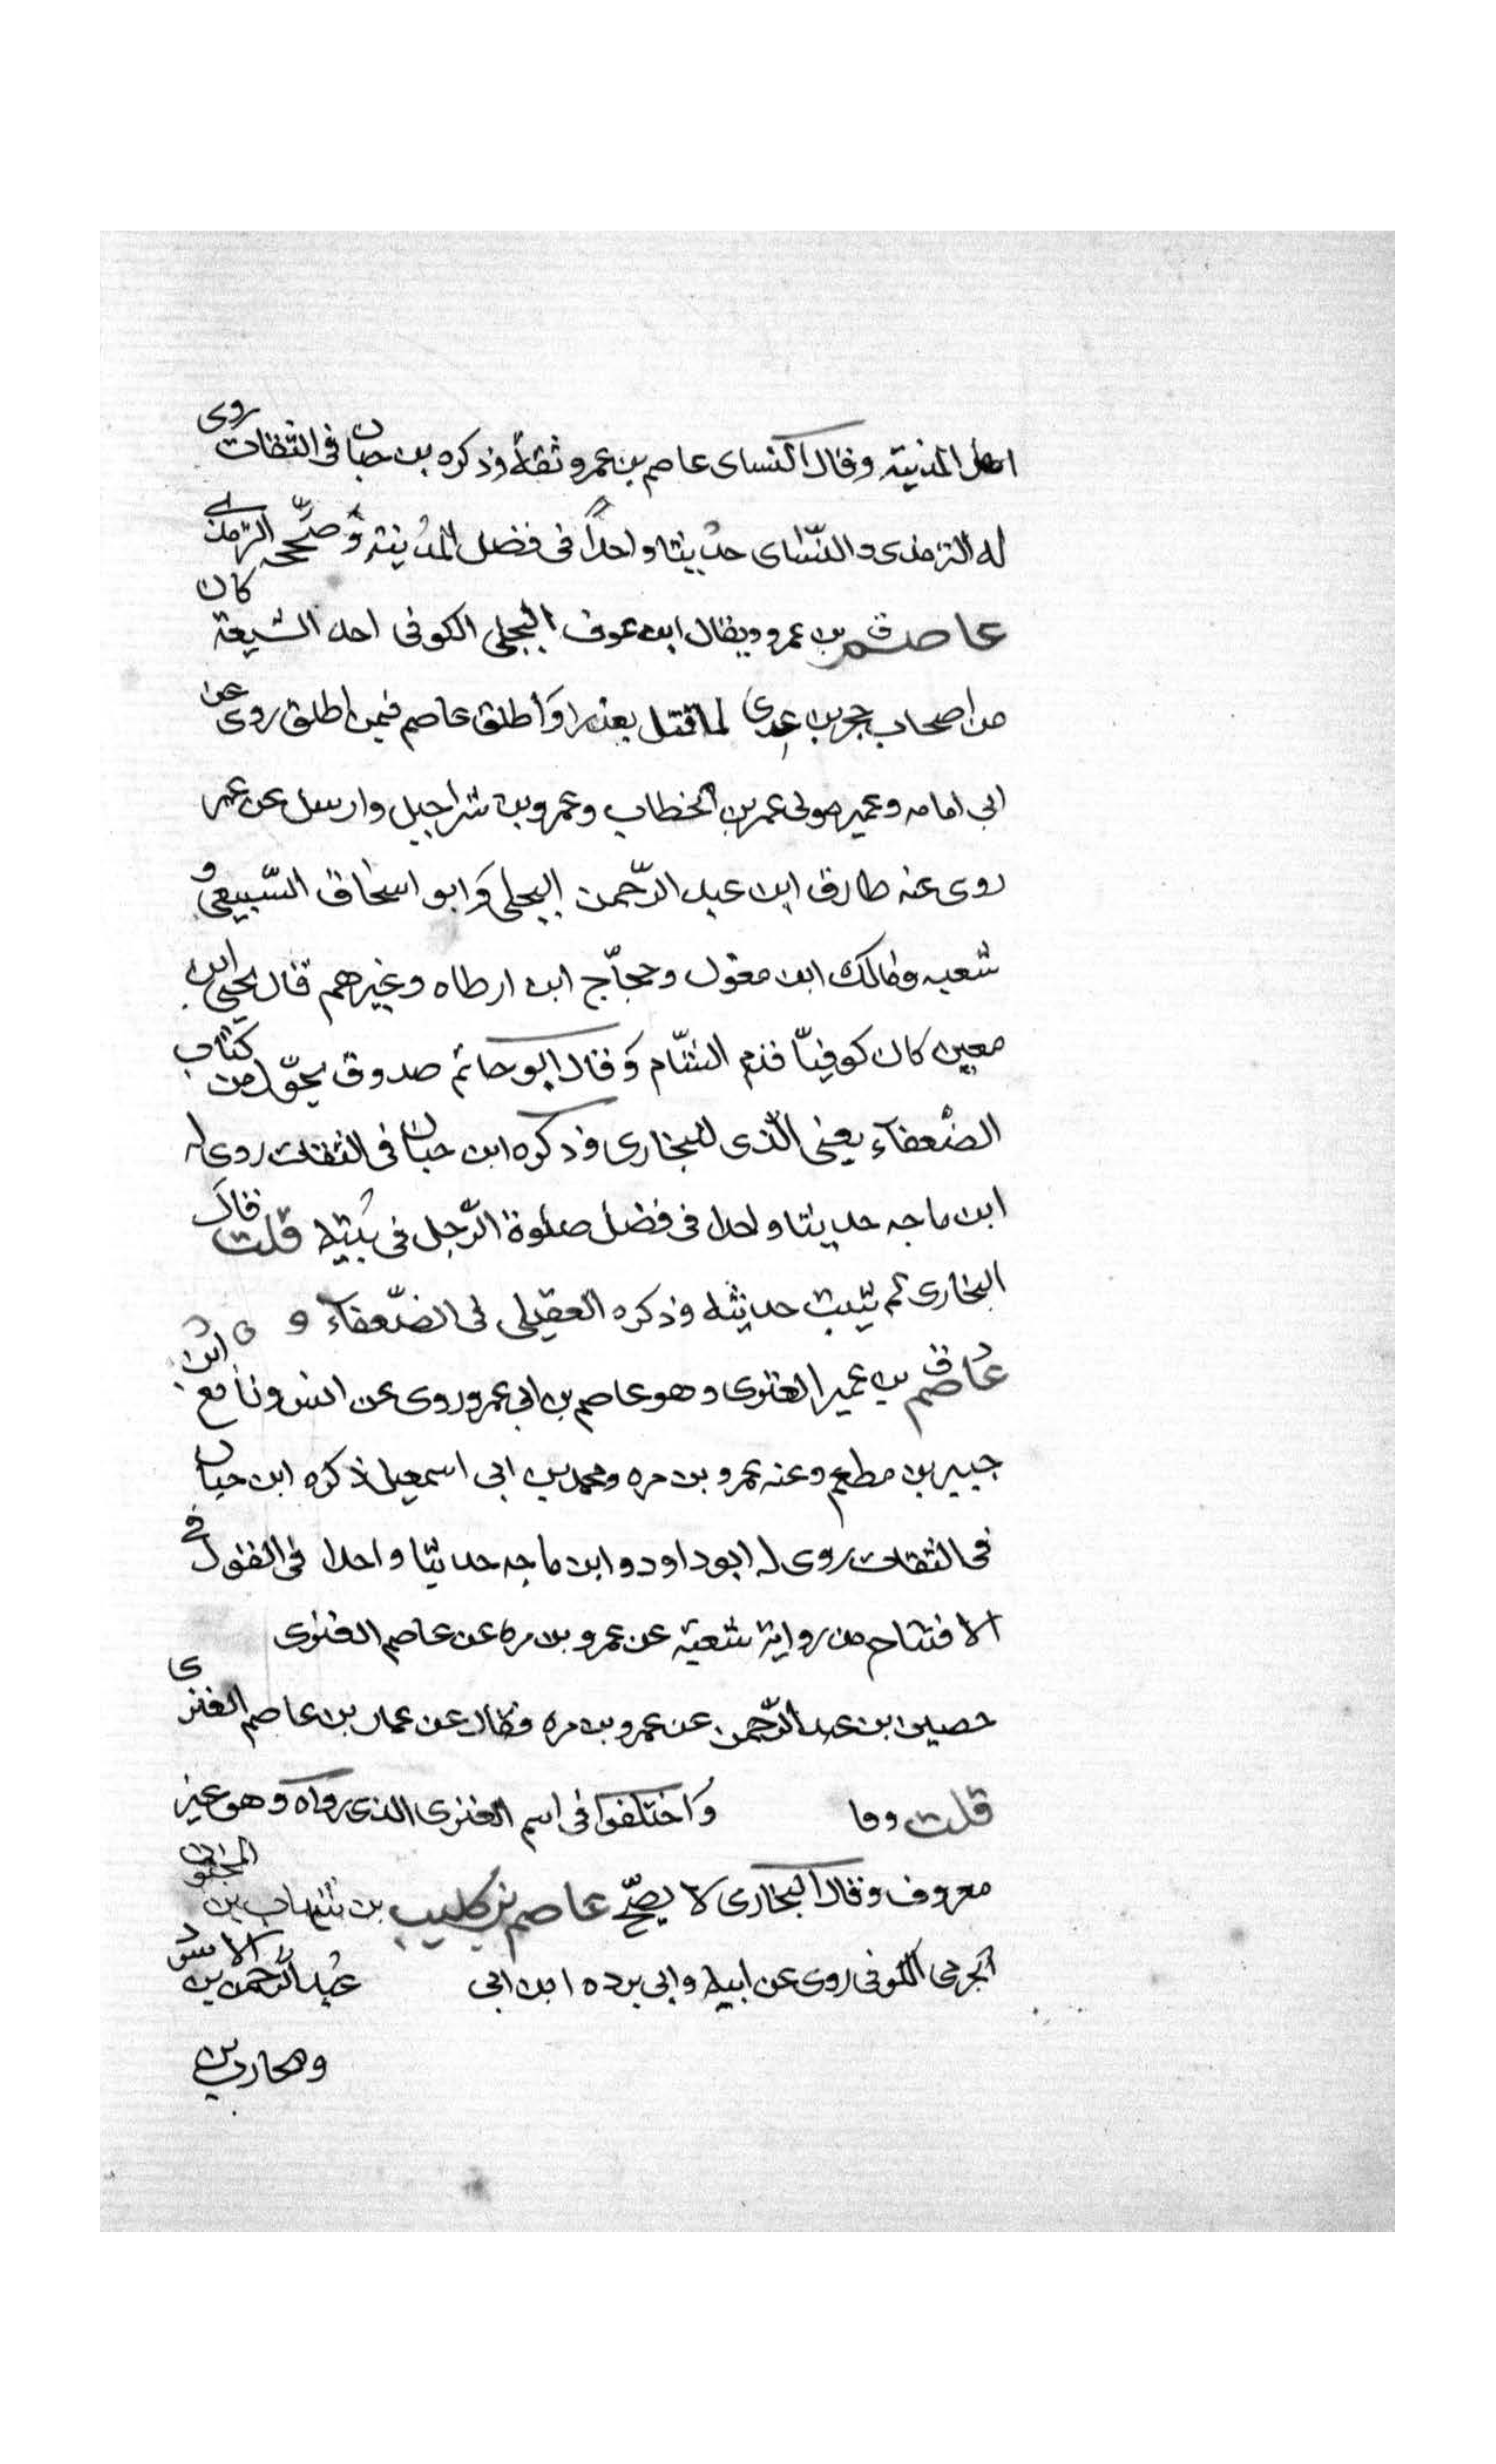 اهل المدنية وقال النساى عاصم بن عمرو ثقة وذكره بن حبان فى الثقات روى
له الترمذى والنّساى حديثا واحداً فى فضل المدينة وَصحّحه الترمذى
عاصم بن عمرو ويقال ابن عوف البجلى الكوفى احد الشيعة كان
من اصحاب حجر بن عدى لما قتل بعذرا وَاطلق عاصم فيمن اطلق روى عن
ابى امامه وعمير مولى عمر بن الخطاب وعمرو بن شراحبيل وارسل عن عمر
روى عنه طارق ابن عبد الرّحمن البجلى وَابو اسحاق السّبيعى و
شعبه ومالك ابن مغول وحجّاج ابن ارطاه وغيرهم قال يحيى ابن
معين كان كوفيّا قدم الشّام وَقال ابو حاتم صدوق يحوّل من كتاب
الضعفآء يعنى الّذى للبخارى وذكره ابن حبان فى الثقات روى له
ابن ماجه حديثا واحدا فى فضل صلوة الرّجل فى بيته قلت قال
البخارى لم يثبت حديثه وذكره العقيلى فى الضّعفآء
عاصم بن عمير العنزى وهو عاصم بن ابى عمرو روى عن انس ونافع ابن
جبير بن مطعم وعنه عمرو بن مره ومحمد بن ابى اسمعيل ذكره ابن حبان
فى الثقات روى له ابو داود وابن ماجه حديثا واحدا فى القول فى
الافتتاح من رواية شعبة عن عمرو بن مره عن عاصم العنزى
حصين ابن عبد الرّحمن عن عمرو بن مره فقال عن عمار بن عاصم العنزى
قلت وما وَاختلفوا فى اسم العنزى الذى رواه وهو غير
معروف وقال البخارى لا يصحّ عاصم بن كليب بن شهاب بن المجنون
الجرمى الكوفى روى عن ابيه وابى برده ابن ابى عبد الرّحمن بن الاسود
ومحارب بن